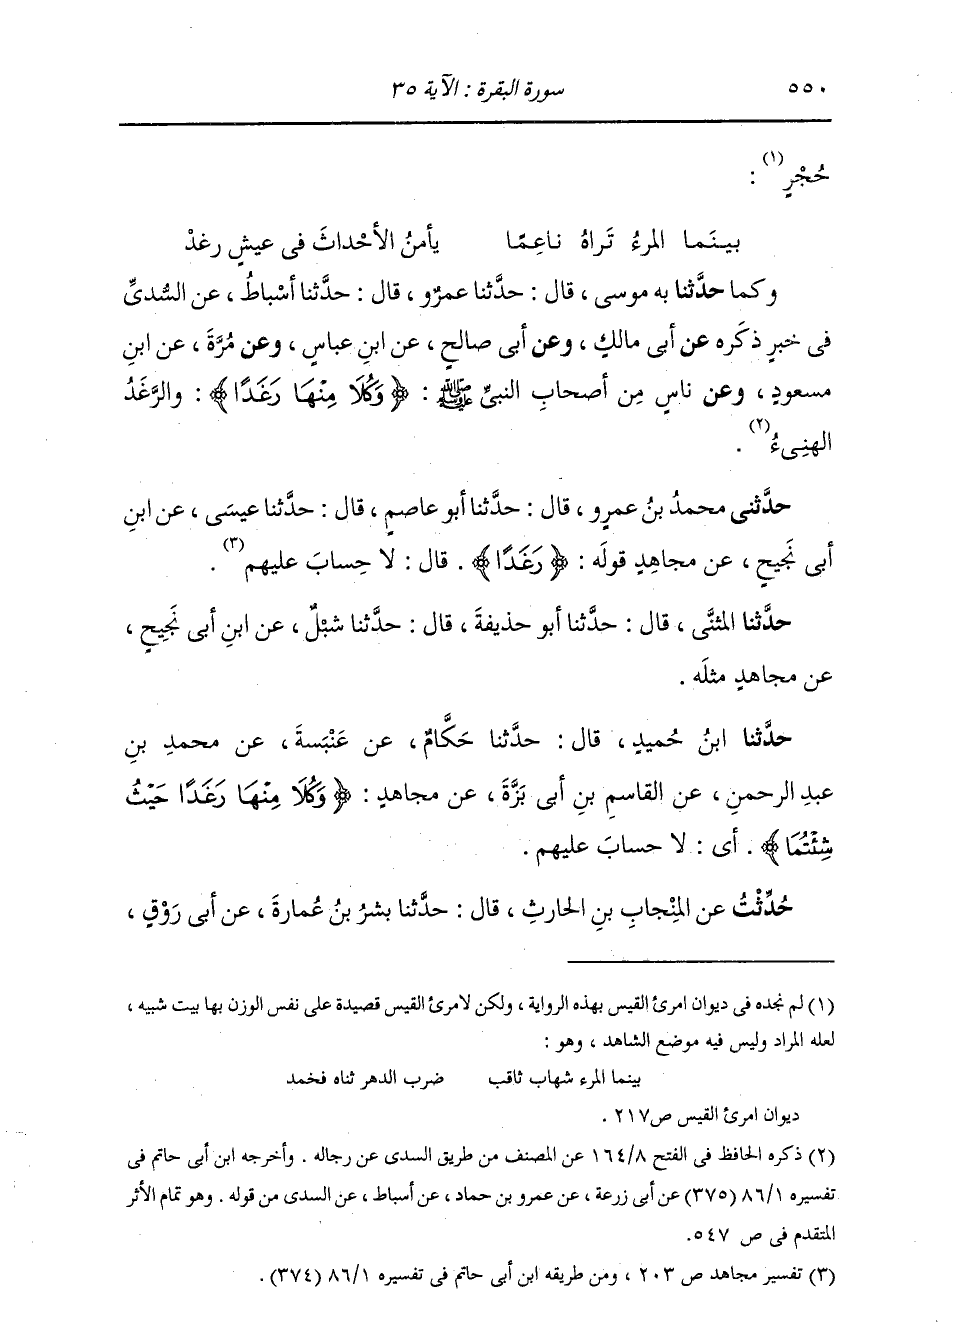 ٥٥٠
سورة البقرة : الآية ٣٥
حُجْرٍ(١) :
بينَما المرءُ تَراهُ ناعِمًا يأمنُ الأحْداثَ فى عيشٍ رغدْ
وكما حدَّثنا به موسى ، قال : حدَّثنا عمرٌو ، قال : حدَّثنا أسْباطُ ، عن السُّدىِّ
فى خبرٍ ذكَره عن أبى مالكٍ ، وعن أبى صالحٍ ، عن ابنِ عباسٍ ، وعن مُرَّةَ ، عن ابنِ
مسعودٍ ، وعن ناسٍ مِن أصحابِ النبىِّ ﷺ : ﴿ وَكُلَا مِنْهَا رَغَدًا ﴾ : والرَّغَدُ
الهنِىءُ(٢) .
حدَّثنى محمدُ بنُ عمرٍو ، قال : حدَّثنا أبو عاصمٍ ، قال : حدَّثنا عيسَى ، عن ابنِ
أبى نَجيحٍ ، عن مجاهِدٍ قولَه : ﴿ رَغَدًا ﴾ . قال : لا حِسابَ عليهم(٣) .
حدَّثنا المثنَّى ، قال : حدَّثنا أبو حذيفةَ ، قال : حدَّثنا شبْلٌ ، عن ابنِ أبى نَجيحٍ ،
عن مجاهدٍ مثلَه .
حدَّثنا ابنُ حُميدٍ ، قال : حدَّثنا حَكَّامٌ ، عن عَنْبَسةَ ، عن محمدِ بنِ
عبدِ الرحمنِ ، عن القاسمِ بنِ أبى بَزَّةَ ، عن مجاهدٍ : ﴿ وَكُلَا مِنْهَا رَغَدًا حَيْثُ
شِئْتُمَا ﴾ . أى : لا حسابَ عليهم .
حُدِّثْتُ عن المِنْجابِ بنِ الحارثِ ، قال : حدَّثنا بشرُ بنُ عُمارةَ ، عن أبى رَوْقٍ ،
(١) لم نجده فى ديوان امرئ القيس بهذه الرواية ، ولكن لامرئ القيس قصيدة على نفس الوزن بها بيت شبيه ،
لعله المراد وليس فيه موضع الشاهد ، وهو :
بينما المرء شهاب ثاقب ضرب الدهر ثناه فخمد
ديوان امرئ القيس ص٢١٧ .
(٢) ذكره الحافظ فى الفتح ١٦٤/٨ عن المصنف من طريق السدى عن رجاله . وأخرجه ابن أبى حاتم فى
تفسيره ٨٦/١ (٣٧٥) عن أبى زرعة ، عن عمرو بن حماد ، عن أسباط ، عن السدى من قوله . وهو تمام الأثر
المتقدم فى ص ٥٤٧.
(٣) تفسير مجاهد ص ٢٠٣ ، ومن طريقه ابن أبى حاتم فى تفسيره ٨٦/١ (٣٧٤) .